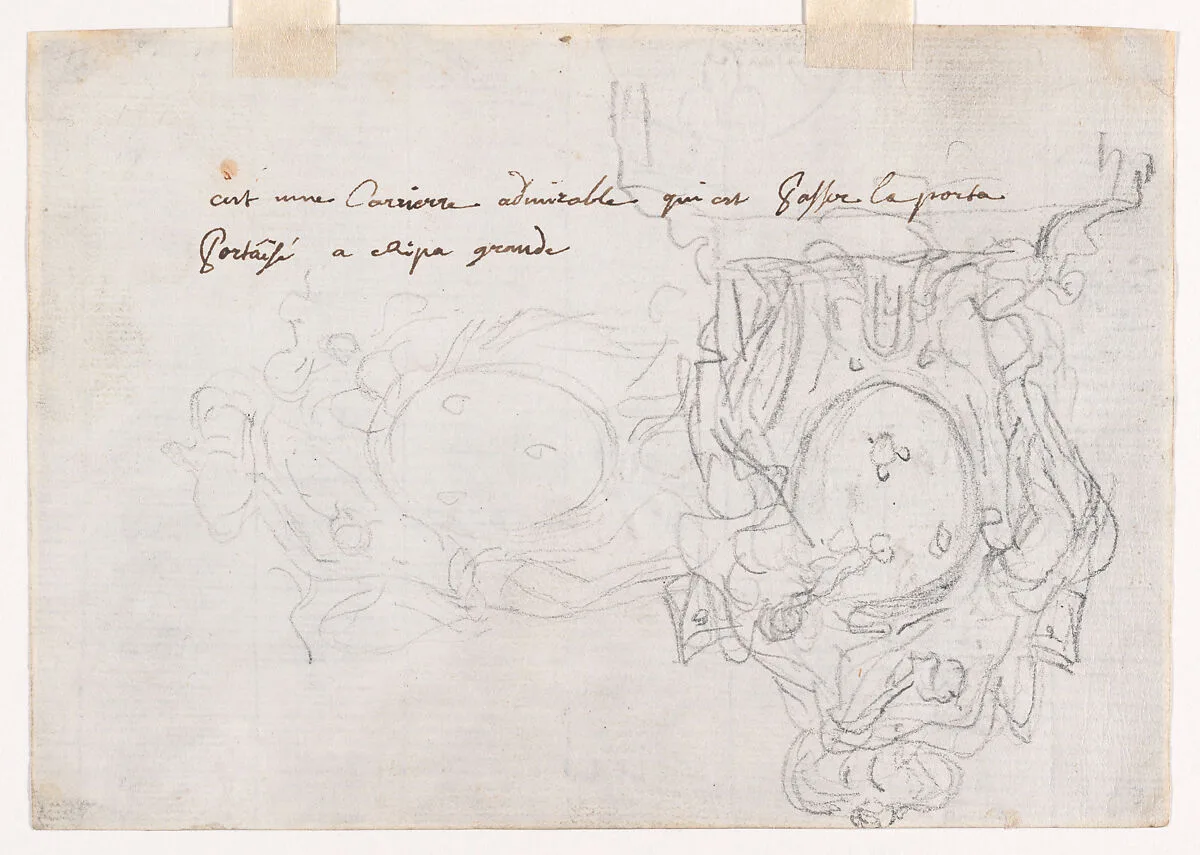 cist une Carrierre admirable qui est Passer la porta
Portaisé a chipa grande